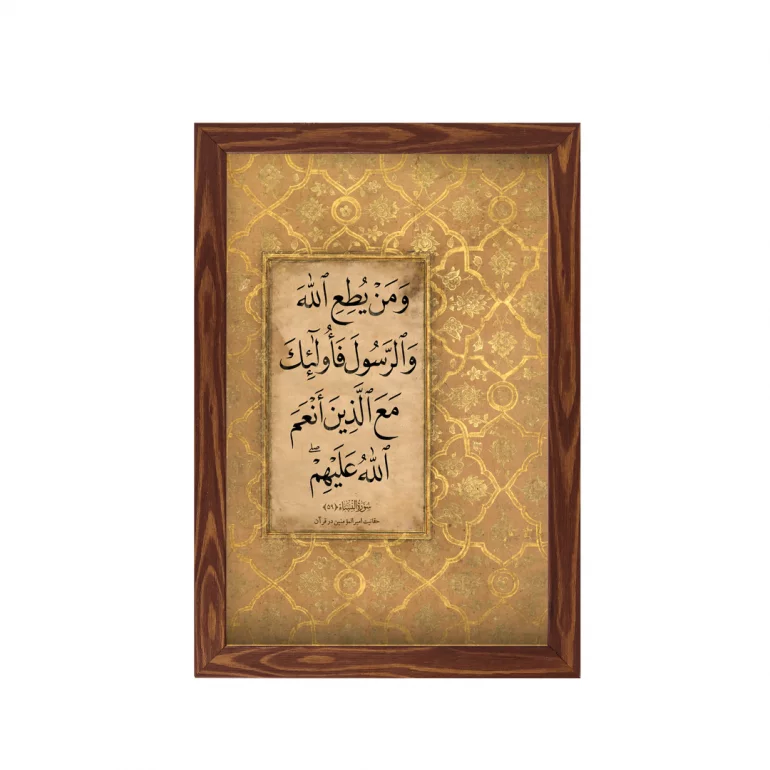 وَمَنْ يُطِعِ ٱللَّهَ
وَٱلرَّسُولَ فَأُولَٰئِكَ
مَعَ ٱلَّذِينَ أَنْعَمَ
ٱللَّهُ عَلَيْهِمْ ۖ
سُورَةُ النِّسَاء ﴿٥٩﴾
حقانیت امیرالمؤمنین در قرآن